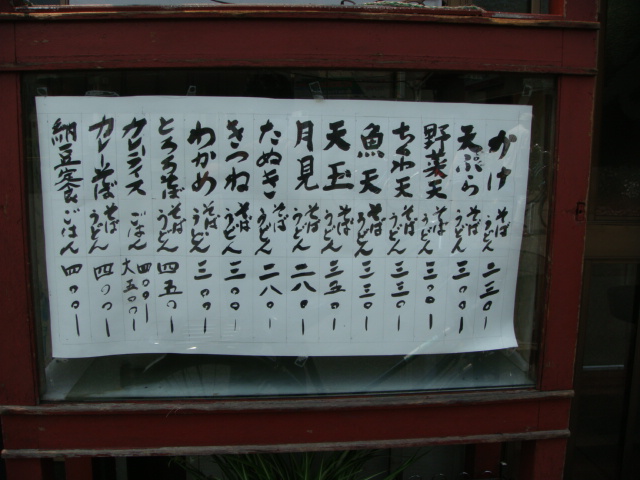 かけ そば うどん 二三〇ー
天ぷら そば うどん 三〇〇ー
野菜天 そば うどん 三〇〇ー
ちくわ天 そば うどん 三三〇ー
魚天 そば うどん 三三〇ー
天玉 そば うどん 三五〇ー
月見 そば うどん 二八〇ー
たぬき そば うどん 二八〇ー
きつね そば うどん 三〇〇ー
わかめ そば うどん 三〇〇ー
とろろそば そば うどん 四五〇ー
カレーライス ごはん 四〇〇ー 大五〇〇ー
カレーそば うどん 四〇〇ー
納豆定食 ごはん 四〇〇ー